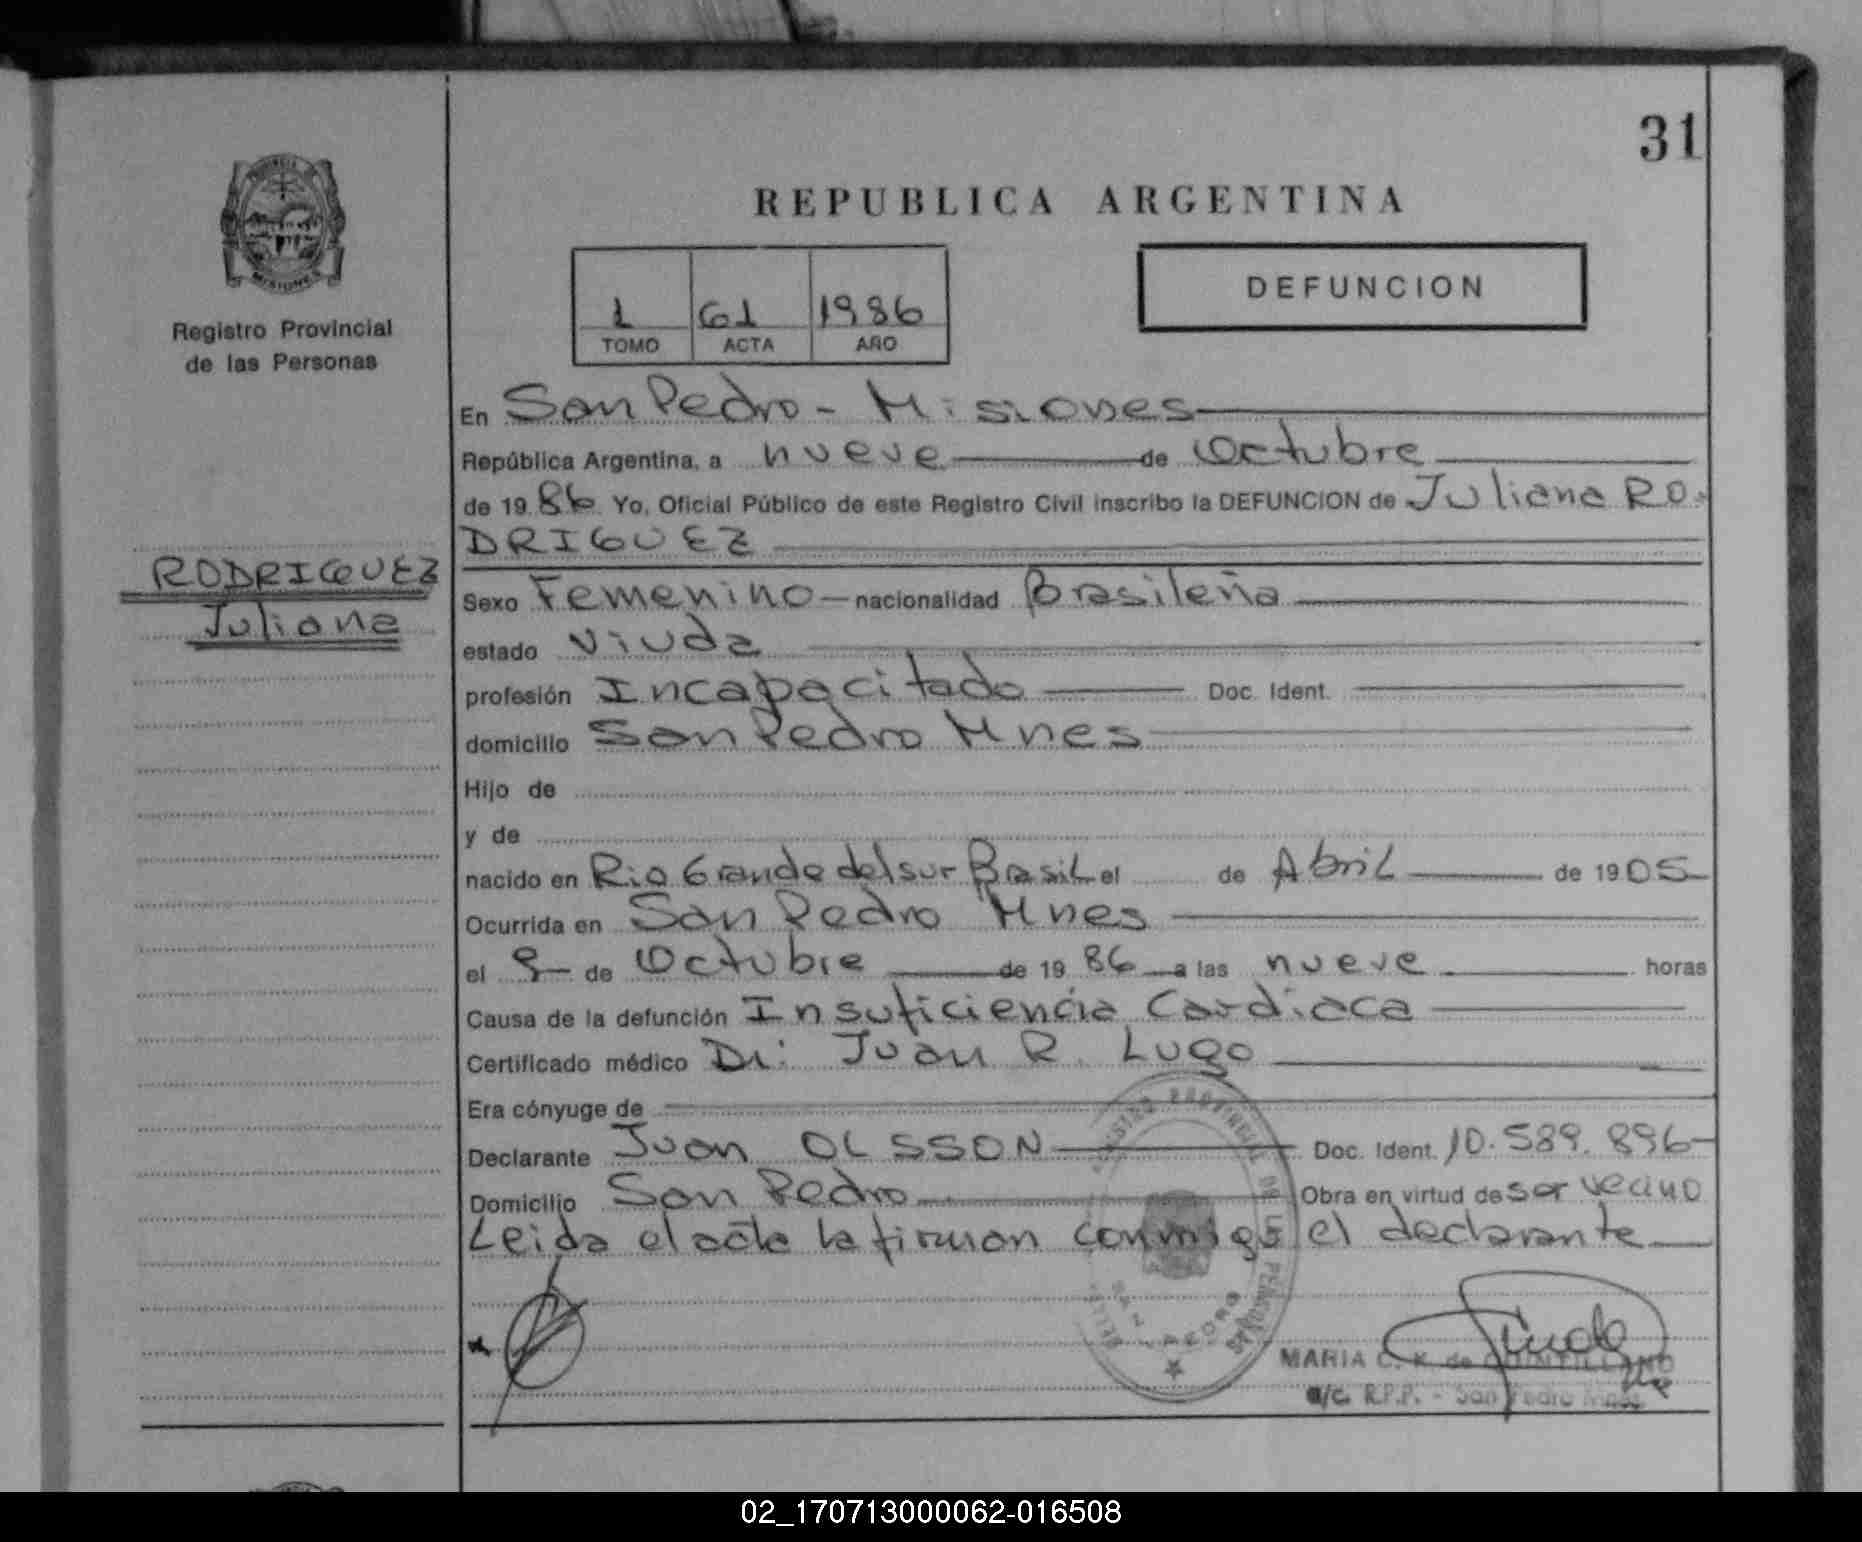 31
PROVINCIA DE
MISIONES
Registro Provincial
de las Personas
REPUBLICA ARGENTINA
1 61 1986
TOMO ACTA AÑO
DEFUNCION
En San Pedro - Misiones
República Argentina, a nueve de Octubre
de 19 86 Yo, Oficial Público de este Registro Civil inscribo la DEFUNCION de Juliana RO-
DRIGUEZ
RODRIGUEZ
Juliana
Sexo Femenino nacionalidad Brasileña
estado Viuda
profesión Incapacitado Doc. Ident.
domicilio San Pedro Mnes
Hijo de
y de
nacido en Rio Grande del sur Brasil el de Abril de 19 05
Ocurrida en San Pedro Mnes
el 9 de Octubre de 19 86 a las nueve horas
Causa de la defunción Insuficiencia Cardiaca
Certificado médico Dr: Juan R. Lugo
Era cónyuge de
Declarante Juan OLSSON Doc. Ident. 10.589.896
Domicilio San Pedro Obra en virtud de ser vecino
Leida el acta la firman conmigo el declarante
REGISTRO PROVINCIAL DE LAS PERSONAS
SAN PEDRO
MARIA C. K. de QUINTILLANO
a/c. R.P.P. - San Pedro Mnes.
02_170713000062-016508